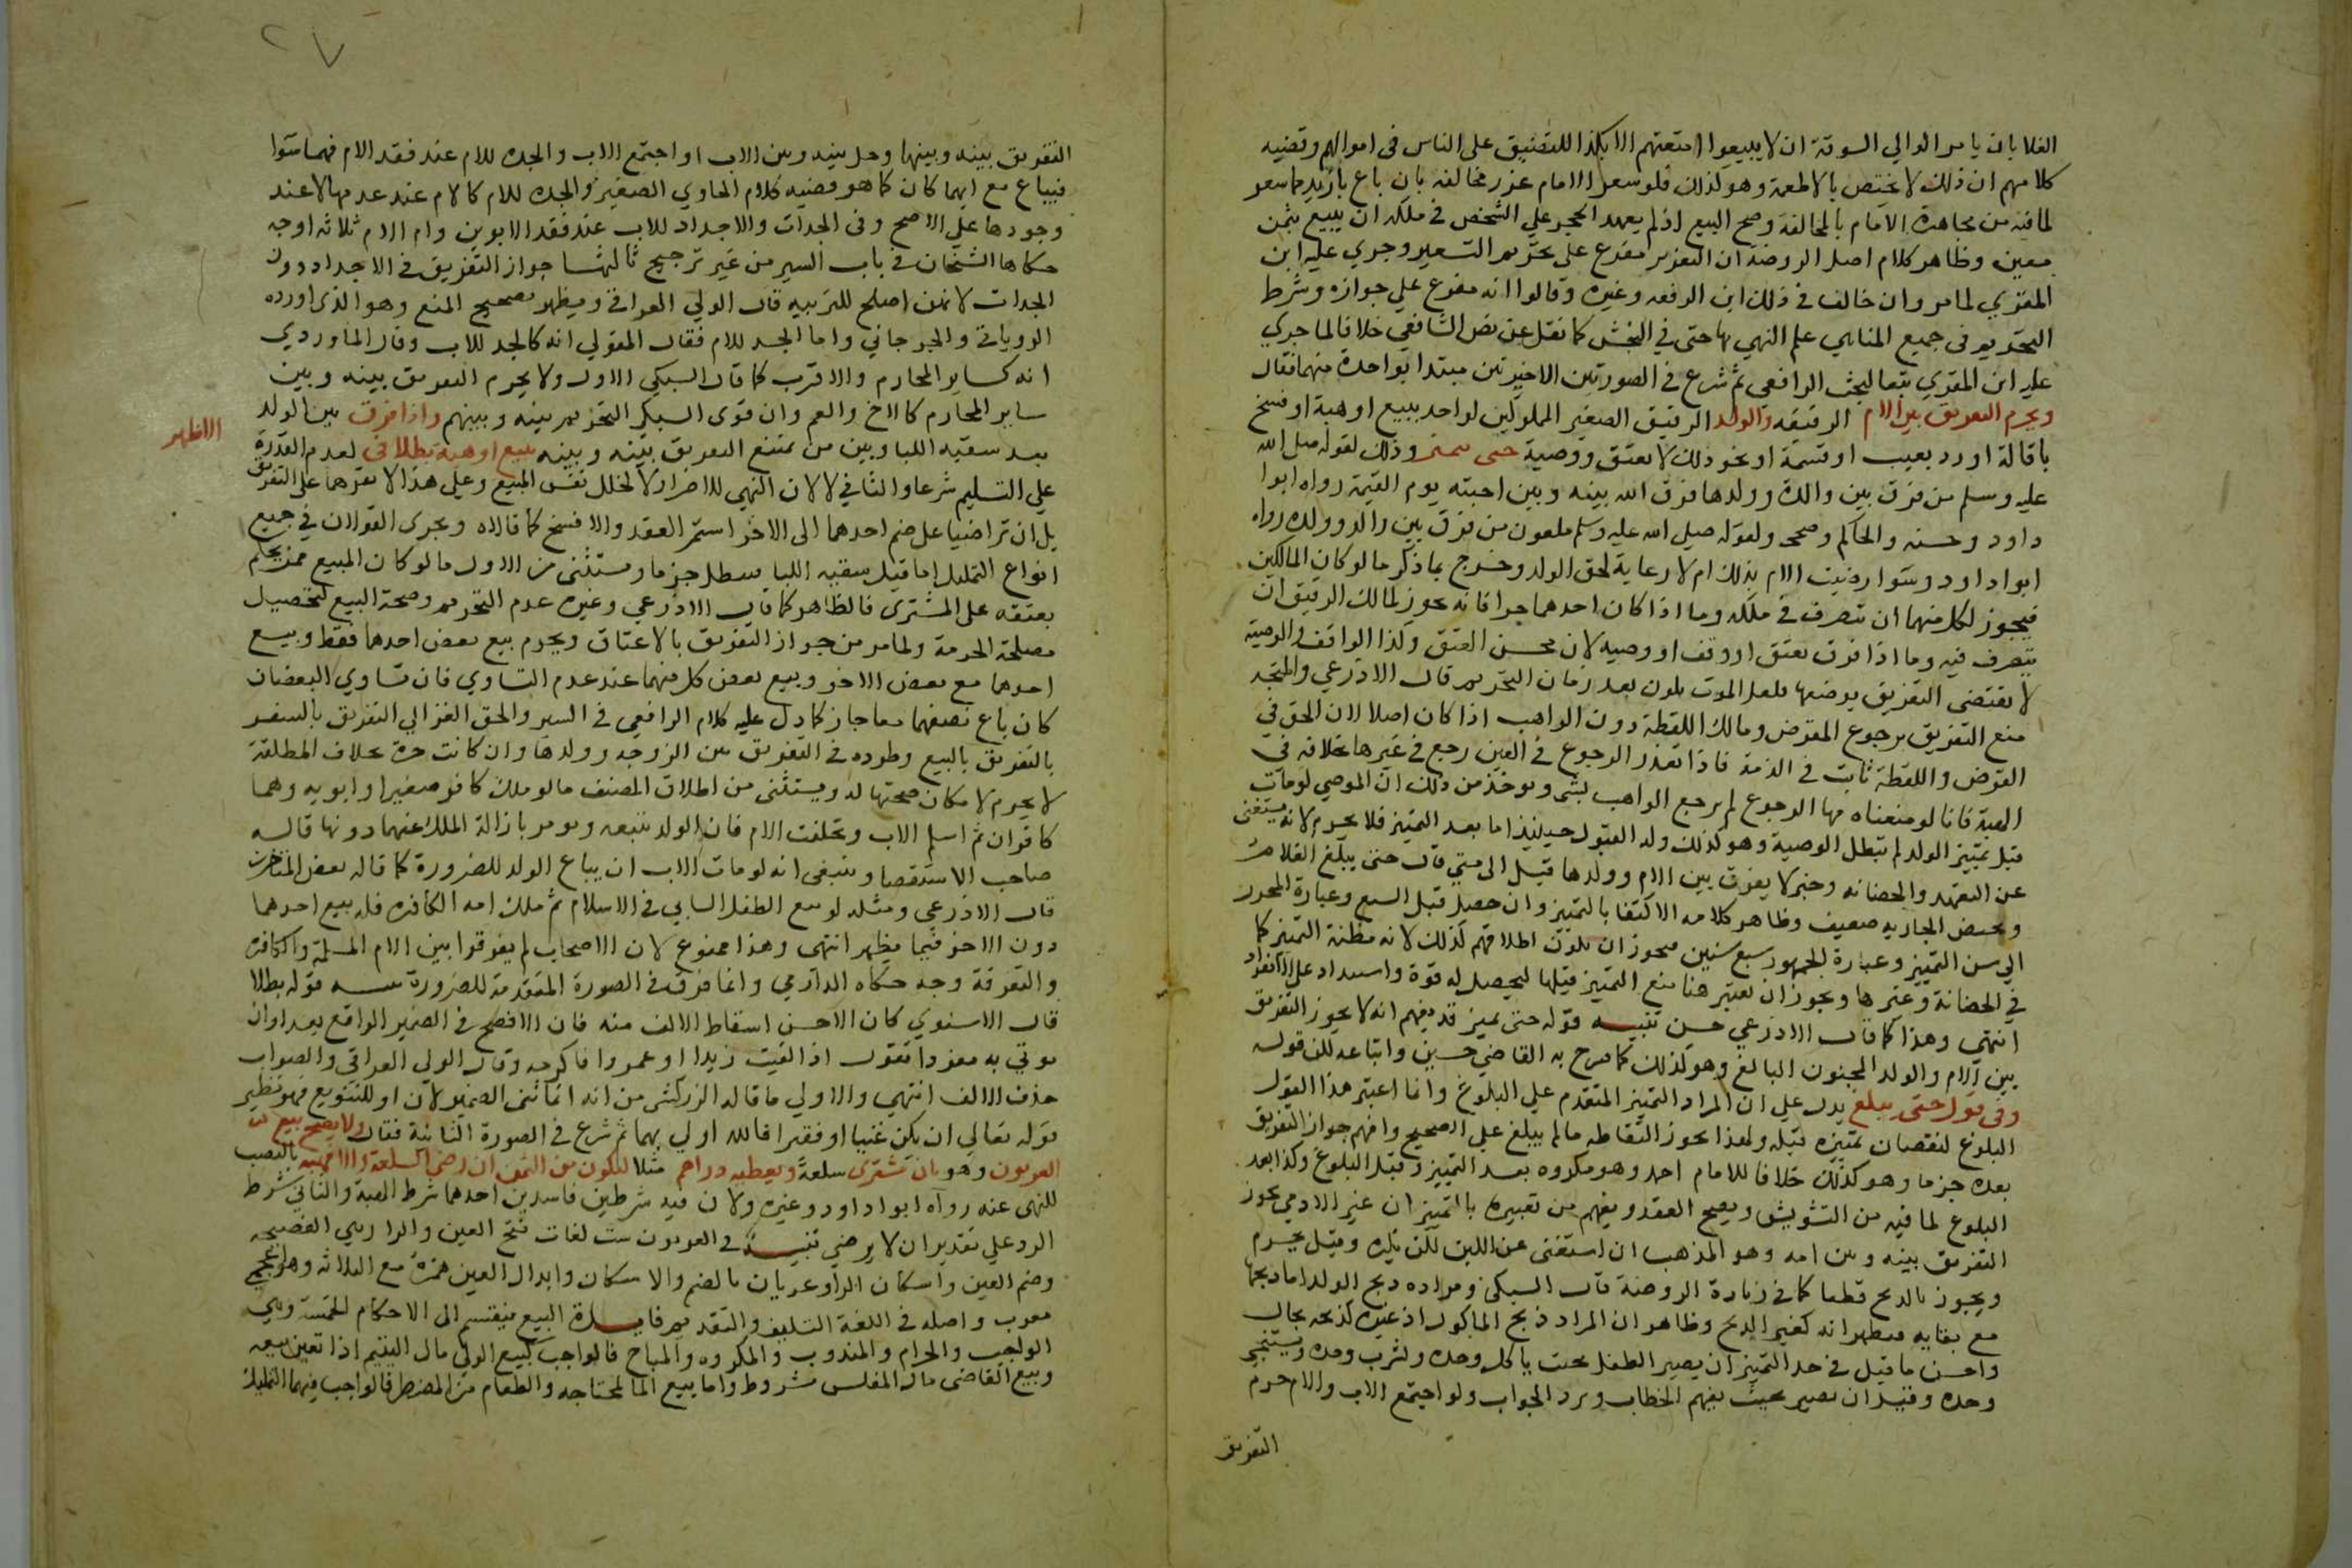 الغلا بان يامر الوالي السوقة ان لا يبيعوا امتعتهم الا بكذا للتضييق على الناس في اموالهم وقضيه
كلامهم ان ذلك لا يختص بالاطعمة وهو كذلك فلو سعر الامام عزر مخالفه بان باع بازيد مما سعر
لما فيه من مجاهرة الامام بالمخالفة وصح البيع اذ لم يعهد الحجر علي الشخص في ملكه ان يبيع بثمن
معين وظاهر كلام اصل الروضة ان التعزير مفرع على تحريم التسعير وجري عليه ابن
المقري لما مر وان خالف في ذلك ابن الرفعه وغيره وقالوا انه مفرع علي جوازه وشرط
التحريم في جميع المناهي علم النهي بها حتى في النجش كما نقل عن نص الشافعي خلافا لما جري
عليه ابن المقري تبعا لبحث الرافعي ثم شرع في الصورتين الاخيرتين مبتدا بواحدة منهما فقال
ويحرم التفريق بين الام الرقيقه والولد الرقيق الصغير المملوكين لواحد ببيع او هبة او فسخ
باقالة او رد بعيب او قسمة او نحو ذلك لا بعتق ووصية حتى يميز وذلك لقوله صلى الله
عليه وسلم من فرق بين والدة وولدها فرق الله بينه وبين احبته يوم القيمة رواه ابوا
داود وحسنه والحاكم وصححه ولقوله صلى الله عليه وسلم ملعون من فرق بين والد وولده رواه
ابوا داود وسوا رضيت الام بذلك ام لا رعاية لحق الولد وخرج بما ذكر ما لو كان المالكين
فيجوز لكل منهما ان يتصرف في ملكه وما اذا كان احدهما حرا فانه يجوز لمالك الرقيق ان
يتصرف فيه وما اذا فرق بعتق او وقف او وصيه لان محسن العتق وكذا الواقف والوصية
لا تقتضي التفريق بوضعها فلعل الموت يكون بعد زمان التحريم قال الاذرعي والمتجه
منع التفريق برجوع المقرض ومالك اللقطة دون الواهب اذا كان اصلا لان الحق في
القرض واللقطة ثابت في الذمة فاذا تعذر الرجوع في العين رجع في غيرها بخلافه في
الهبة فانا لو منعناه فيها الرجوع لم يرجع الواهب بشي ويوخذ من ذلك ان الموصي لو مات
قبل تمييز الولد لم تبطل الوصية وهو كذلك وله القبول حينيذ اما بعد التمييز فلا يحرم لانه يستغنى
عن التعهد والحضانه وخبر لا يفرق بين الام وولدها قيل الى متي قال حتى يبلغ الغلام
وتحيض الجاريه ضعيف وظاهر كلامه الاكتفا بالتمييز وان حصل قبل السبع وعبارة المحرر
الي سن التمييز وعبارة الجمهور سبع سنين فيجوز ان يكون اطلاقهم لذلك لانه مظنة التمييز كما
في الحضانة وغيرها ويجوز ان يعتبر هنا منع التمييز قبلها ليحصل له قوة واستبداد علي الانفراد
انتهى وهذا كما قال الاذرعي حسن تنبيه قوله حتى يميز قد يفهم انه لا يجوز التفريق
بين الام والولد المجنون البالغ وهو كذلك كما صرح به القاضي حسين واتباعه لكن قوله
وفي قول حتى يبلغ يدل علي ان المراد التمييز المتقدم علي البلوغ وانما اعتبر هذا القول
البلوغ لنقصان تمييزه قبله ولهذا يجوز التقاطه ما لم يبلغ علي الصحيح وافهم جواز التفريق
بعده جزما وهو كذلك خلافا للامام احمد وهو مكروه بعد التمييز وقبل البلوغ وكذا بعد
البلوغ لما فيه من التشويش ويصح العقد ويفهم من تعبيره بالتمييز ان غير الادمي يجوز
التفريق بينه وبين امه وهو المذهب ان استغنى عن اللبن لكن يكره وقيل يحرم
ويجوز بالذبح قطعا كما في زيادة الروضة قال السبكي ومراده ذبح الولد اما ذبحها
مع بقايه فيظهر انه كغير الذبح وظاهر ان المراد ذبح الماكول اذ غيره لذبحه بحال
واحسن ما قيل في حد التمييز ان يصير الطفل بحيث ياكل وحده ويشرب وحده ويستنجي
وحده وقيل ان يصير بحيث يفهم الخطاب ويرد الجواب ولو اجتمع الاب والام حرم
التفريق
٢٧
التفريق بينه وبينها وحل بينه وبين الاب او اجتمع الاب والجده للام عند فقد الام فهما سوا
فيباع مع ايهما كان كما هو قضيه كلام الحاوي الصغير والجده للام كالام عند عدمها لا عند
وجودها علي الاصح وفي الجدات والاجداد للاب عند فقد الابوين وام الام ثلاثه اوجه
حكاها الشيخان في باب السير من غير ترجيح ثالثها جواز التفريق في الاجداد دون
الجدات لانهن اصلح للتربيه قال الولي العراقي ويظهر تصحيح المنع وهو الذي اورده
الروياني والجرجاني واما الجد للام فقال المتولي انه كالجد للاب وقال الماوردي
انه كساير المحارم والاقرب كما قال السبكي الاول ولا يحرم التفريق بينه وبين
ساير المحارم كالاخ والعم وان قوى السبكي التحريم بينه وبينهم واذا فرق بين الولد
بعد سقيه اللبا وبين من يمتنع التفريق بينه وبينه ببيع او هبة بطلا في لعدم القدرة
الاظهر
علي التسليم شرعا والثاني لا لان النهي للاضرار لا لخلل نفس المبيع وعلي هذا لا نقرهما على التفريق
بل ان تراضيا على ضم احدهما الى الاخر استمر العقد والا فسخ كما قالاه ويجري القولان في جميع
انواع التمليك اما قبل سقيه اللبا فيبطل جزما ويستثنى من الاول ما لو كان المبيع ممن يحكم
بعتقه على المشتري فالظاهر كما قال الاذرعي وغيره عدم التحريم وصحة البيع لتحصيل
مصلحة الحرمة ولما مر من جواز التفريق بالاعتاق ويحرم بيع بعض احدهما فقط وبيع
احدهما مع بعض الاخر وبيع بعض كل منهما عند عدم التساوي فان تساوي البعضان
كان باع نصفهما معا جاز كما دل عليه كلام الرافعي في السير والحق الغزالي التفريق بالسفر
بالتفريق بالبيع وطرده في التفريق بين الزوجه وولدها وان كانت حرة بخلاف المطلقة
لا يحرم لامكان صحبتها له ويستثنى من اطلاق المصنف ما لو ملك كافر صغيرا وابويه وهما
كافران ثم اسلم الاب وتخلفت الام فان الولد يتبعه ويومر بازالة الملك عنهما دونها قاله
صاحب الاستقصا وينبغي انه لو مات الاب ان يباع الولد للضرورة كما قاله بعض المتاخرين
قال الاذرعي ومثله لو تبع الطفل السابي في الاسلام ثم ملك امه الكافره فله بيع احدهما
دون الاخر فيما يظهر انتهى وهذا ممنوع لان الاصحاب لم يفرقوا بين الام المسلمة والكافره
والتفرقة وجه حكاه الدارمي وانما فرق في الصورة المتقدمة للضرورة تنبيه قوله بطلا
قال الاسنوي كان الاحسن اسقاط الالف منه فان الافصح في الضمير الواقع بعد او ان
يوتي به مفردا تقول اذا لقيت زيدا او عمروا فاكرمه وقال الولي العراقي والصواب
حذف الالف انتهى والاولي ما قاله الزركشي من انه انما ثنى الضمير لان او للتنويع فهو نظير
قوله تعالي ان يكن غنيا او فقيرا فالله اولي بهما ثم شرع في الصورة الثانية فقال ولا يصح بيع
العربون وهو بان يشتري سلعة ويعطيه دراهم مثلا لتكون من الثمن ان رضي السلعة والا فهبه بالنصب
للنهى عنه رواه ابوا داود وغيره ولان فيه شرطين فاسدين احدهما شرط الهبة والثاني شرط
الرد على تقدير ان لا يرضي تنبيه في العربون ست لغات فتح العين والرا وهي الفصيحه
وضم العين واسكان الرا وعربان بالضم والاسكان وابدال العين همزة مع الثلاثه وهو اعجمي
معرب واصله في اللغة التسليف والتقديم فايدة البيع ينقسم الى الاحكام الخمسة وهي
الواجب والحرام والمندوب والمكروه والمباح فالواجب كبيع الولي مال اليتيم اذا تعين بيعه
وبيع القاضي مال المفلس بشروط واما بيع الما لمحتاجه والطعام من المضطر فالواجب فيهما التمليك